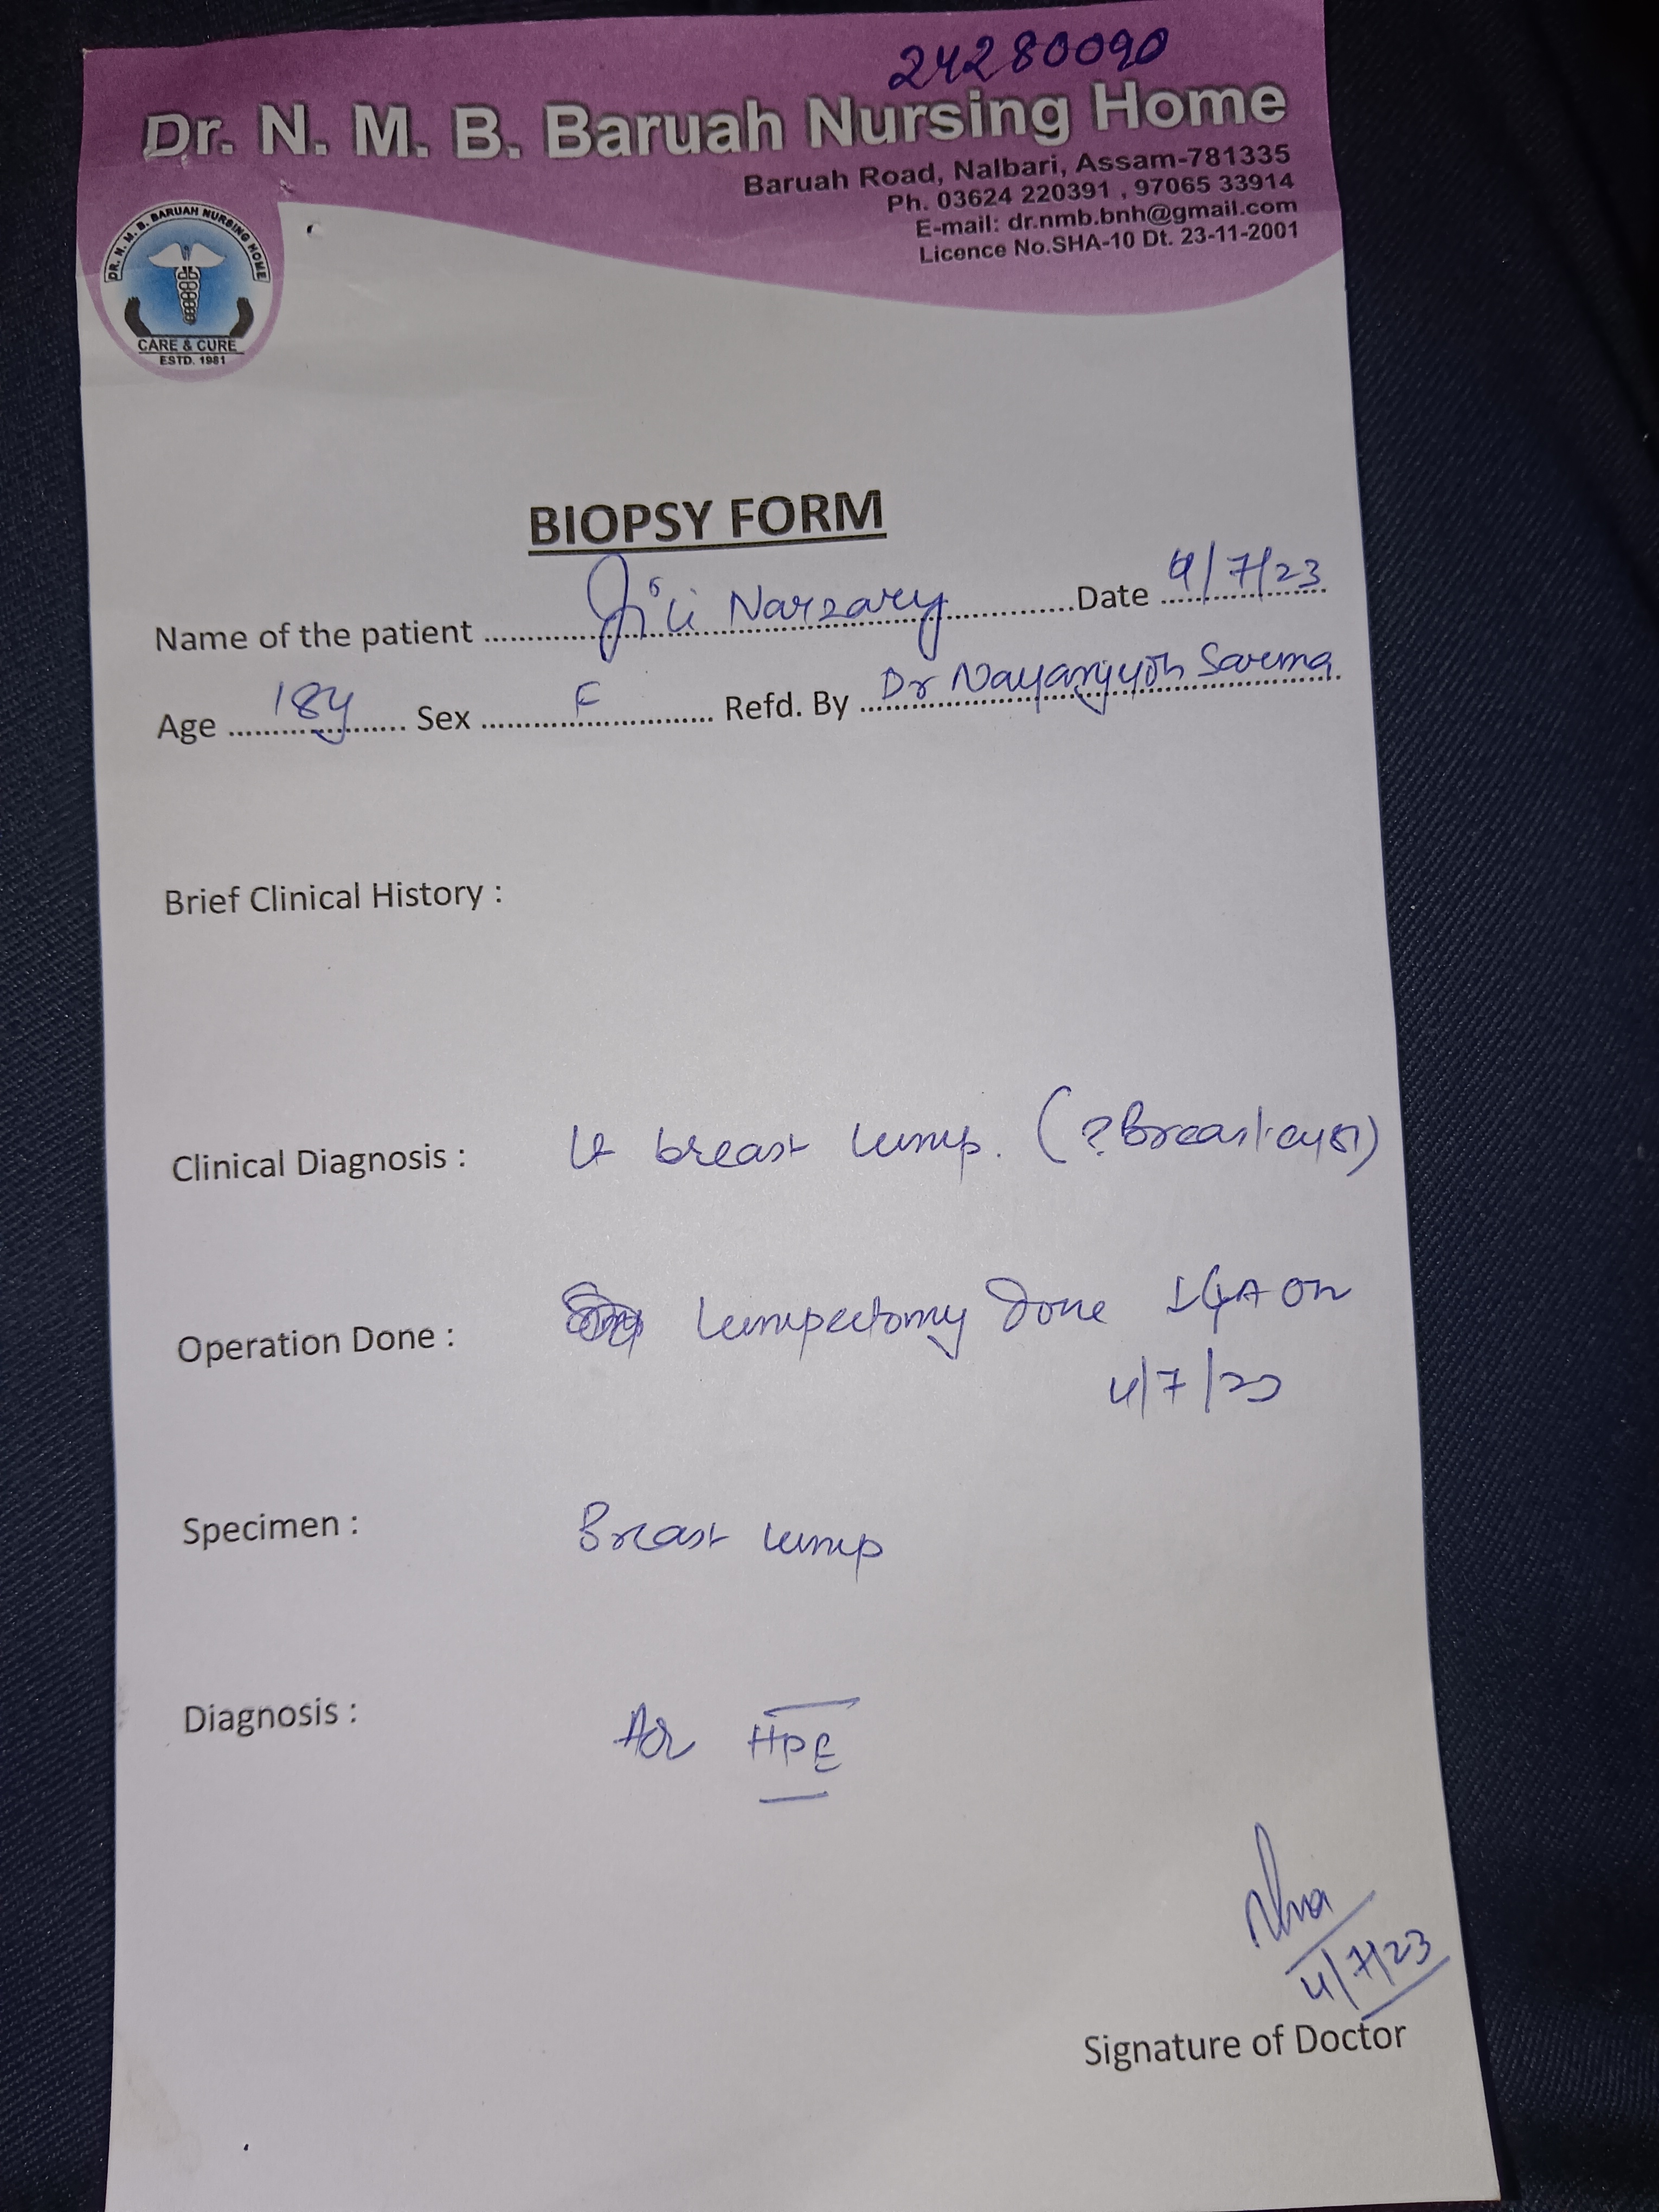 24280090
Dr. N. M. B. Baruah Nursing Home
Baruah Road, Nalbari, Assam-781335
Ph. 03624 220391 , 97065 33914
E-mail: dr.nmb.bnh@gmail.com
Licence No.SHA-10 Dt. 23-11-2001
DR. N. M. B. BARUAH NURSING HOME
CARE & CURE
ESTD. 1981
BIOPSY FORM
Name of the patient Jili Narzary Date 4/7/23
Age 18y Sex F Refd. By Dr Nayanjyoti Sarma
Brief Clinical History :
Clinical Diagnosis : Lt breast lump. (? Breast cyst)
Operation Done : Lumpectomy done on
4/7/23
Specimen : Breast lump
Diagnosis : HPE
4/7/23
Signature of Doctor